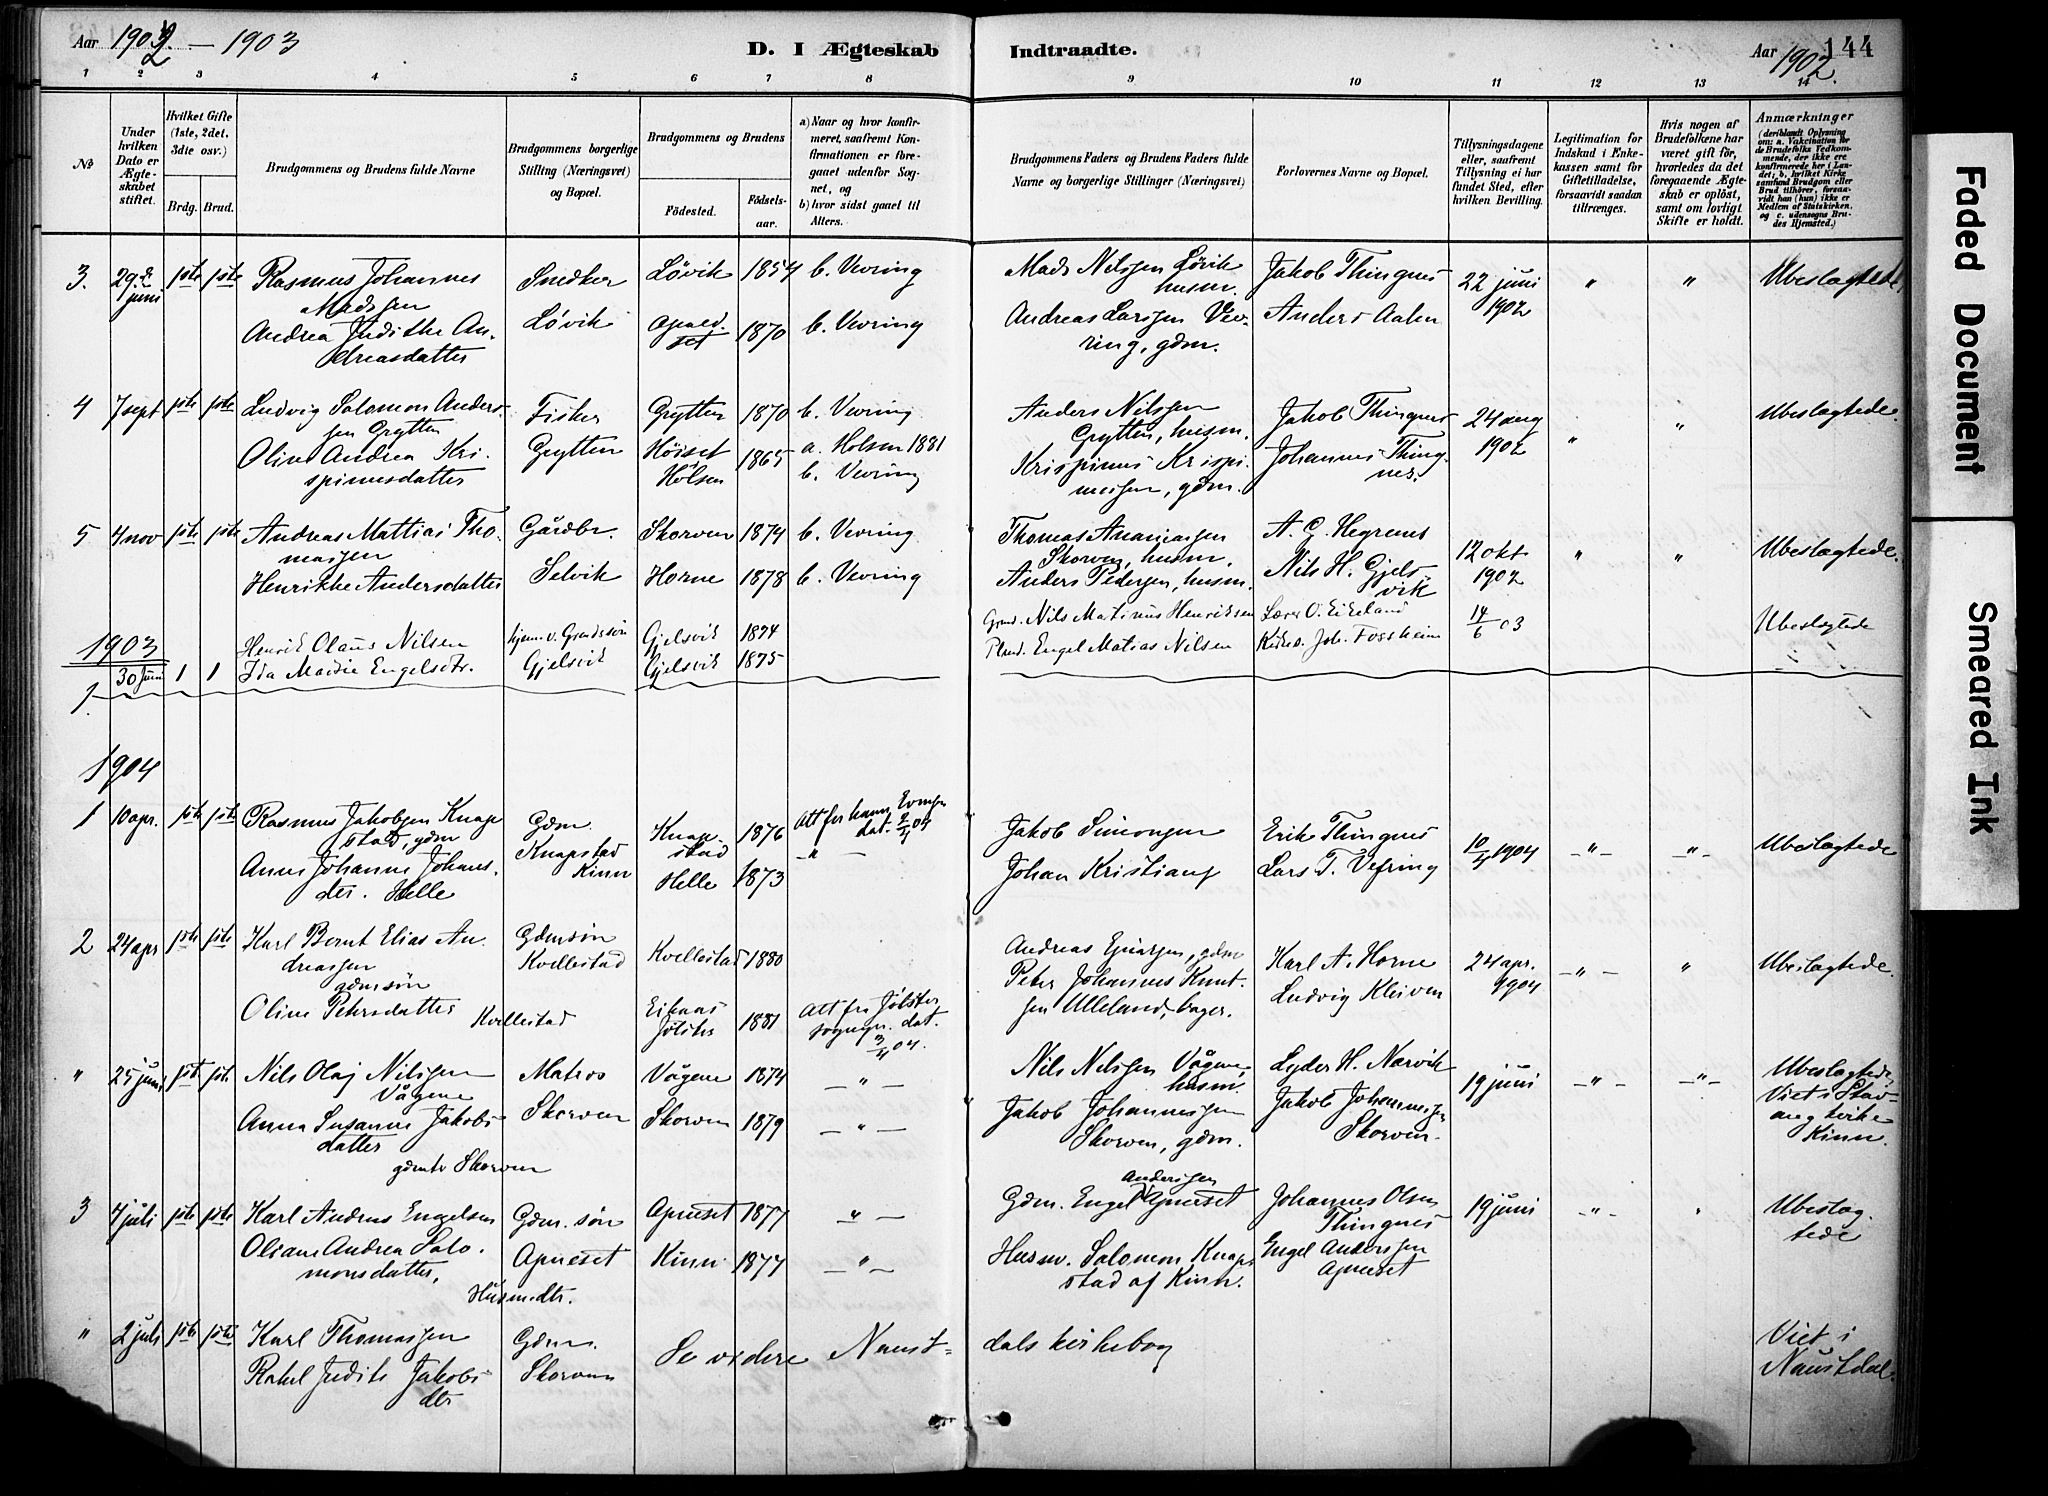 Aar 1902. — 1903
D. I Ægteskab
Indtraadte.
Aar 1902.
144
1 2 3 4 5 6 7 8 9 10 11 12 13 14
№
Under hvilken Dato er Ægteskabet stiftet.
Hvilket Gifte (1ste, 2det, 3die osv.)
Brdg. Brud.
Brudgommens og Brudens fulde Navne
Brudgommens borgerlige Stilling (Næringsvei) og Bopæl.
Brudgommens og Brudens
Fødested.
Fødselsaar.
a) Naar og hvor konfirmeret, saafremt Konfirmationen er foregaaet udenfor Sognet, og
b) hvor sidst gaaet til Alters.
Brudgommens Faders og Brudens Faders fulde Navne og borgerlige Stillinger (Næringsvei)
Forlovernes Navne og Bopæl.
Tillysningsdagene eller, saafremt Tillysning ei har fundet Sted, efter hvilken Bevilling.
Legitimation for Indskud i Enkekassen samt for Giftetilladelse, forsaavidt saadan tiltrænges.
Hvis nogen af Brudefolkene har været gift før, hvorledes da det foregaaende Ægteskab er opløst, samt om lovligt Skifte er holdt.
Anmærkninger (deriblandt Oplysning om: a. Vakcination for de Brudefolks Vedkommende, der ikke ere konfirmerede her i Landet; b. hvilket Kirkesamfund Brudgom eller Brud tilhører, forsaavidt han (hun) ikke er Medlem af Statskirken, og c. udensogns Brudes Hjemsted.)
3. 29de juni 1ste 1ste Rasmus Johannes Madssen Snedker Løvik 1854 b. Vevring Mads Nilssen Løvik husm. Jakob Thingnes 22 juni 1902 " " Ubeslægtede
Andrea Judithe Andreasdatter Løvik 1870 b. Vevring Andreas Larssen Vevring, gdm. Anders Aalen
4 7 sept 1ste 1ste Ludvig Salomon Anderssen Grytten Fisker Grytten 1870 b. Vevring Anders Nilssen Grytten, husm. Jakob Thingnes 24 aug 1902 " " Ubeslægtede
Oline Andrea Krispinusdatter Grytten Høiset Holsen 1865 a. Holsen 1881 b. Vevring Krispinus Krispinussen, gdm. Johannes Thingnes.
5 4 nov 1ste 1ste Andreas Mattias Thomassen Gårdbr. Skorven 1874 b. Vevring Thomas Ananiassen Skorven, husm. A. G. Hegrenes 12 okt 1902 " " Ubeslægtede.
Henrikke Andersdatter Selvik Horne 1878 b. Vevring Anders Pedersen, husm. Nils H. Gjelsvik
1903
1 30 Juni 1 1 Henrik Olaus Nilsen Gjelsvik 1874 Nils Matinus Henriksen Lærer O. Eikeland 14/6 03 Ubeslægtede
Ida Marie Engelsdtr. Gjelsvik Gjelsvik 1875 Engel Matias Nilsen Joh. Fossheim
1904
1 10 apr. 1ste 1ste Rasmus Jakobsen Knapstad, gdm Gdm. Knapstad Kinn Knapstad 1876 Att for ham dat. 2/4 04 Jakob Simonsen Erik Thingnes 10/4 1904 —"— —"— Ubeslægtede
Anne Johanne Johansdtr. Helle Helle 1873 —"— Johan Kristians Lars T. Vefring
2 24 apr 1ste 1ste Karl Bernt Elias Andreassen gdmsøn Gdmsøn Kvellestad Kvellestad 1880 Andreas Einarsen, gdm Karl A. Horne 24 apr. 1904 —"— " Ubeslægtede.
Oline Petersdatter Kvellestad Jølster 1881 Att fra Jølster sogнepr. dat. 3/4 04. Peter Johannes Knutsen Ulleland, bager. Ludvig Kleiven
" 25 juni 1ste 1ste Nils Olaj Nilssen Vågene Matros Vågene 1874 —"— Nils Nilssen Vågene, husm. Lyder H. Nærvik 19 juni —"— —"— Ubeslægtede Viet i Stavang kirke Kinn.
Anna Susanne Jakobsdatter gdmtr Skorven Skorven Skorven 1879 —"— Jakob Johannessen Skorven, gdm. Jakob Johannessen Skorven.
3 4 juli 1ste 1ste Karl Andreas Engelsen Gdm. søn Apneset 1877 "— Gdm. Engel Anderssen Apneset Johannes Olsen Thingnes 19 juni —"— " Ubeslægtede
Oliane Andrea Salomonsdatter, Husmdtr. Apneset Kinn 1877 —"— Husm. Salomon Knapstad af Kinn. Engel Anderssen Apneset
" 2 juli 1ste 1ste Karl Thomassen Gdm. Se videre Naustdals kirkebog Viet i Naustdal.
Rakel Judit Jakobsdtr Skorven
Faded Document
Smeared Ink